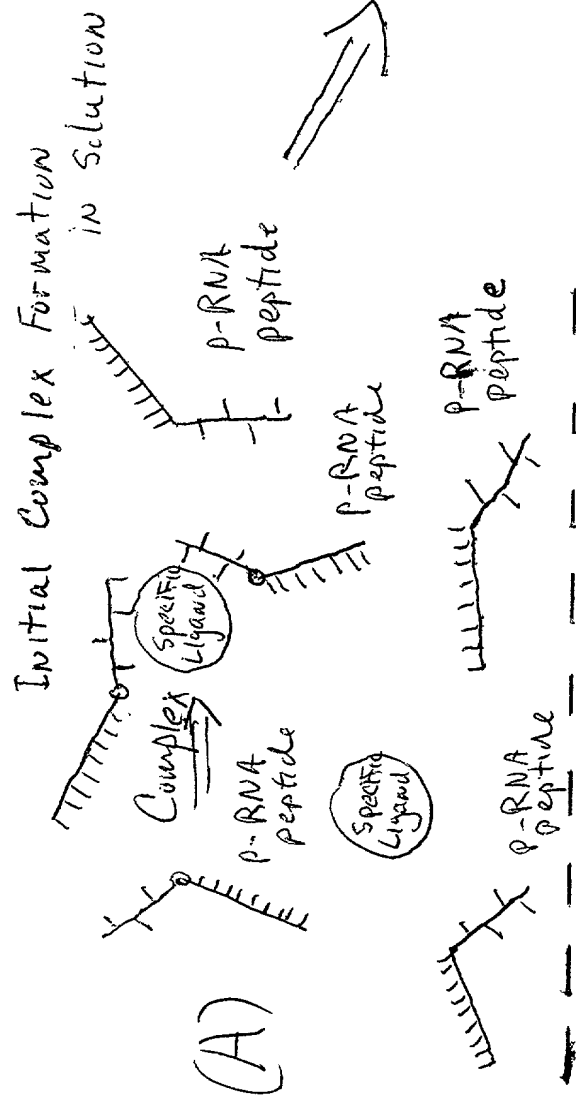 Initial Complex Formation
in Solution
(A)
Complex
Specific
Ligand
p-RNA
peptide
p-RNA
peptide
p-RNA
peptide
Specific
Ligand
p-RNA
peptide
p-RNA
peptide